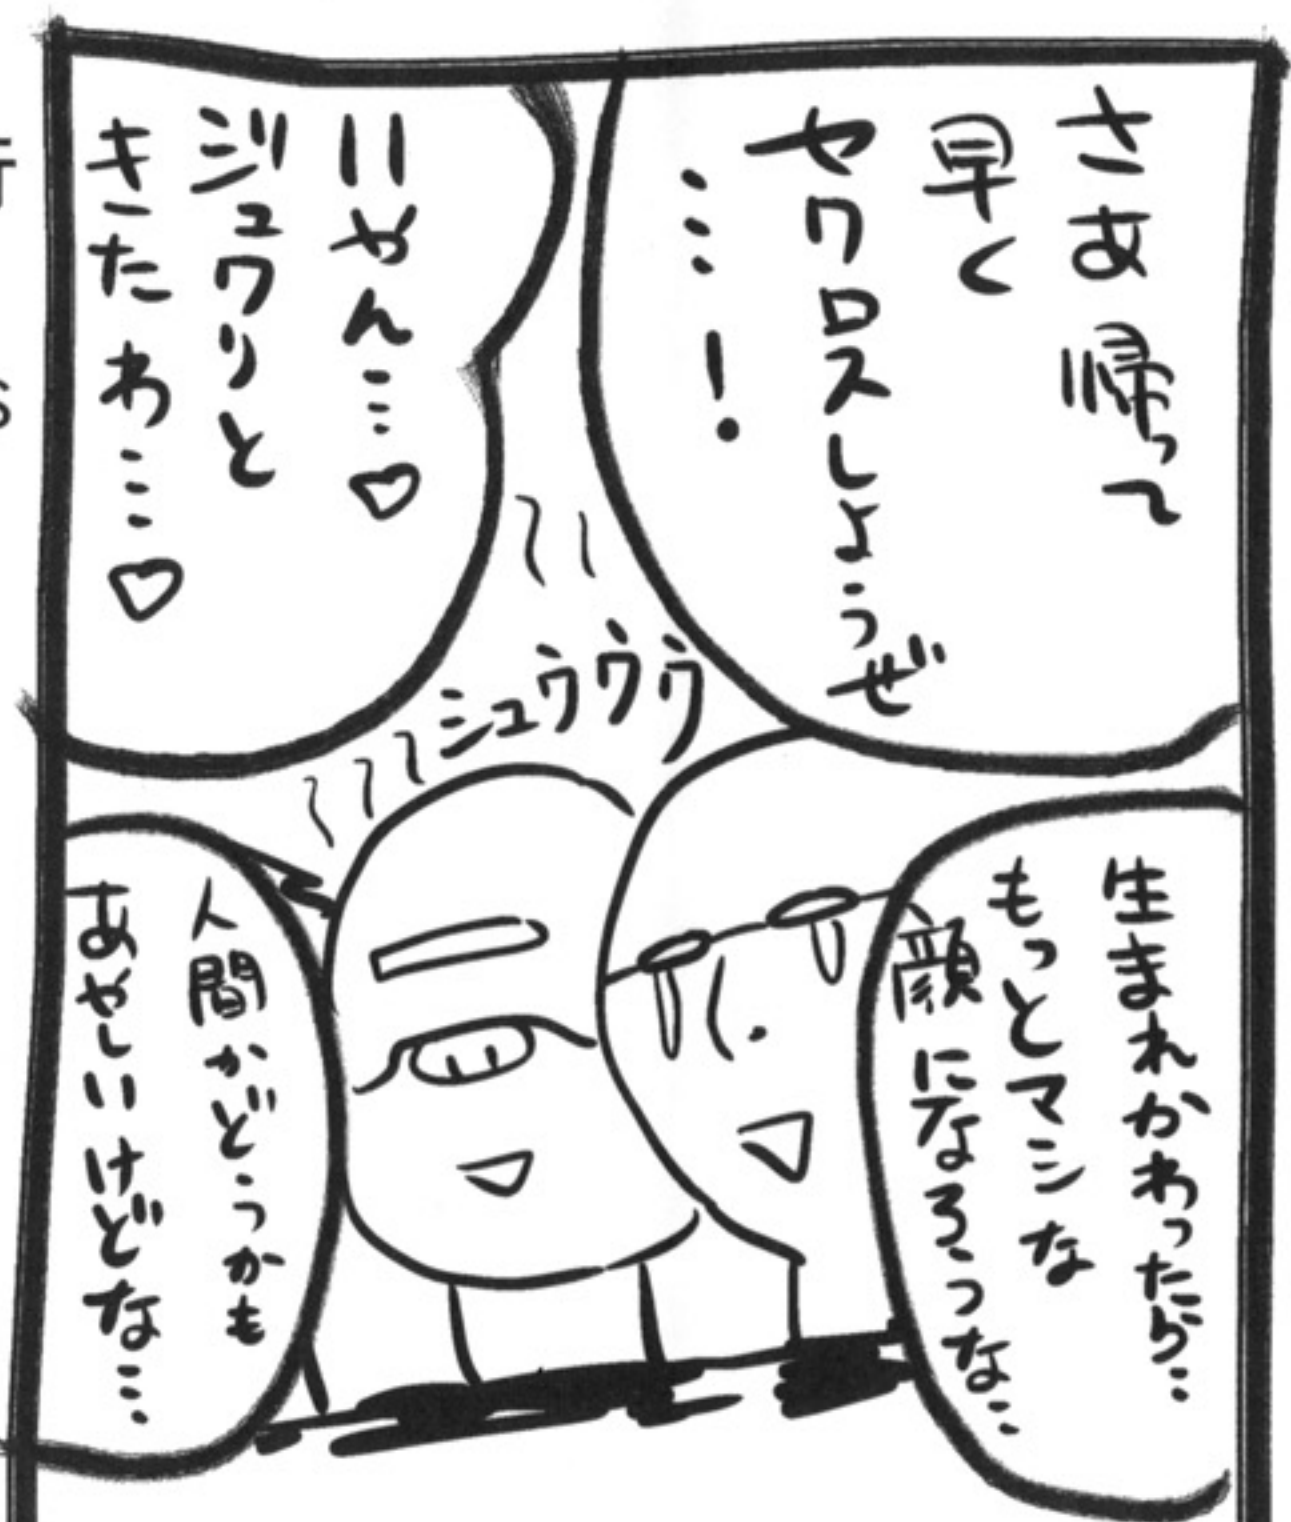 さあ 帰って
早く
セクロスしようぜ
…！
いやん…♡
ジュワリと
きたわ…♡
シュウウウ
生まれかわったら…
もっとマシな
顔になろうな…
人間かどうかも
あやしいけどな…